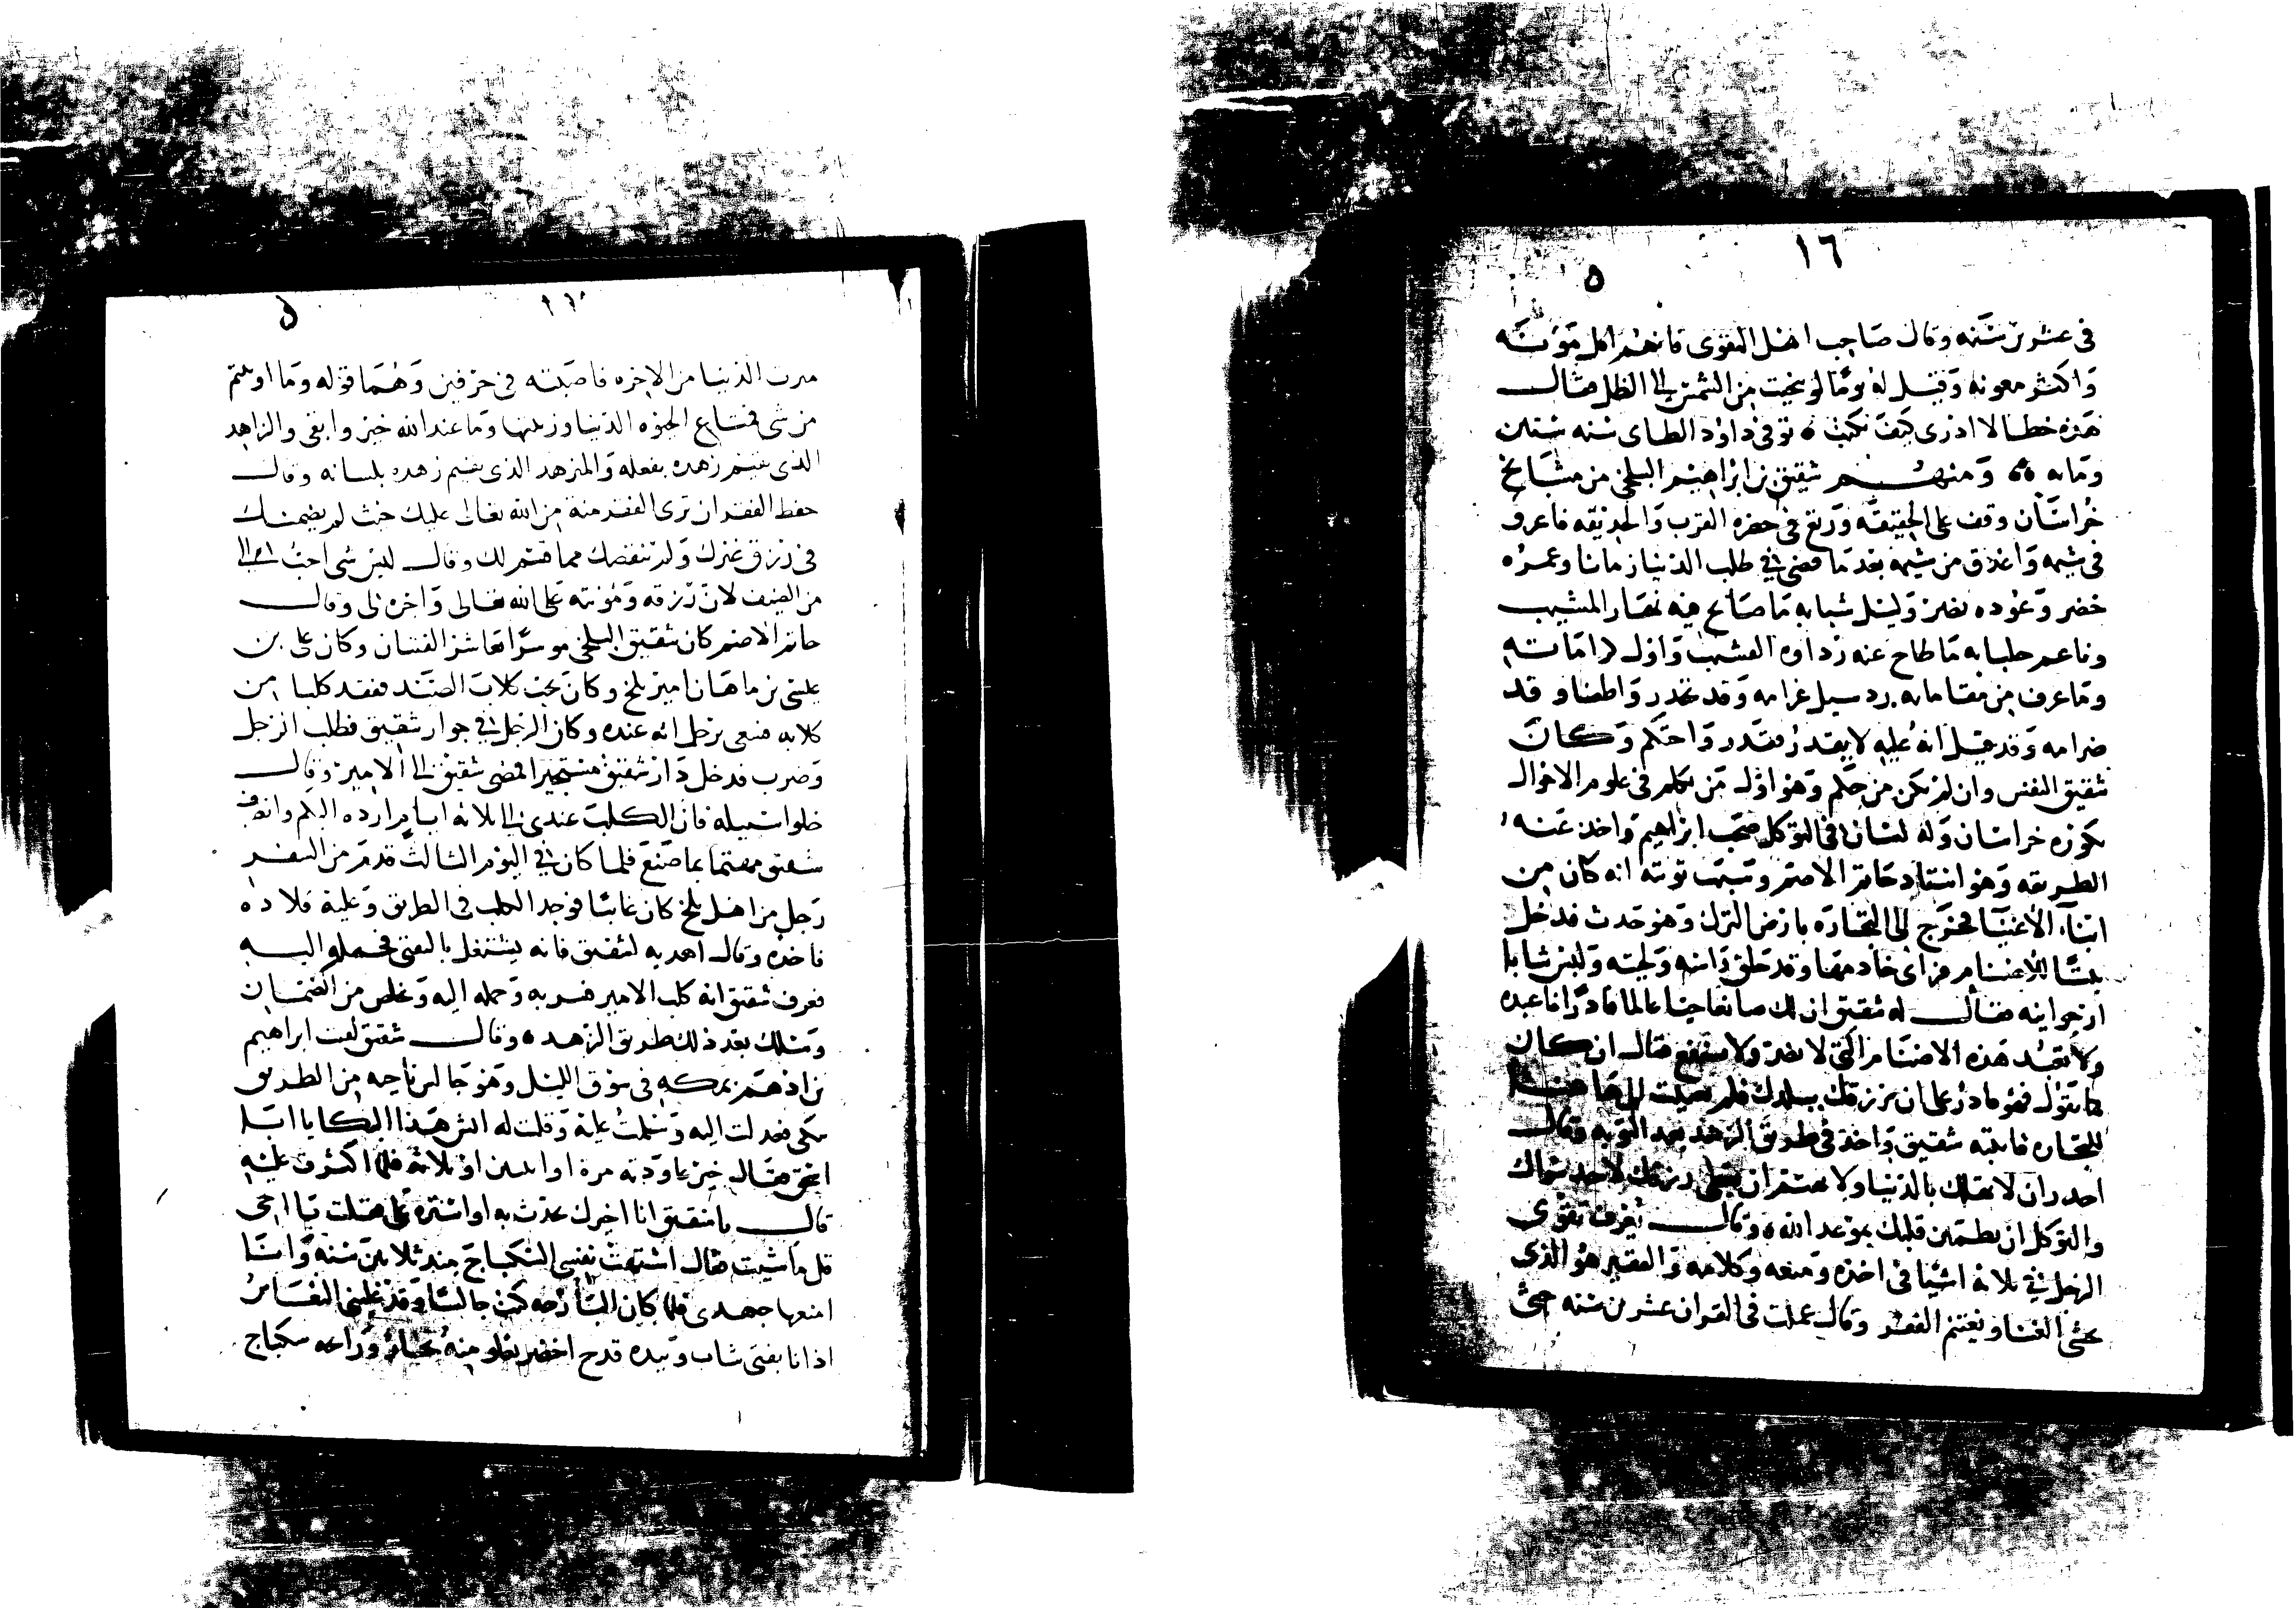 ١٦
في عشرين سنه وقال صاحب اهل التقوى فانهم اقل مؤنه
واكثر معونه وقيل له يوما لو تنحيت من الشمس الى الظل فقال
هذه خطا لا ادري كيف تكتب ه توفي داؤد الطاى سنه ستين
ومايه ه ومنهم شقيق بن ابراهيم البلخي من مشايخ
خراسان وقف على الحقيقه ورتع في حضره القرب والحديقه
في طلب الدنيا زمانا وعمره
خضر وعوده نضر وليل شبابه ما صاح فيه نهار المشيب
وقد
وقد قيل انه عليه لا يقدر فقدر واحتكم وكان
شقيق النفس وان لم يكن من حكم وهو اول من تكلم في علوم الاحوال
بكوره خراسان وله لسان في التوكل صحب ابراهيم واخذ عنه
الطريقه وهو استاد حاتم الاصم وسبب توبته انه كان من
ابناء الاغنيا فخرج الى التجاره بارض الترك وهو حدث فدخل
بيتا للاصنام فراى خادمها وقد حلق راسه ولحيته ولبس ثيابا
ارجوانيه فقال له شقيق ان لك صانعا حيا عالما قادرا فاعبده
ولا تعبد هذه الاصنام التي لا تضر ولا تنفع فقال ان كان
كما تقول فهو قادر على ان يرزقك ببلدك فلم تعنيت الى هاهنا
للتجاره فانتبه شقيق واخذ في طريق الزهد بعد التوبه وقال
احذر ان لا تهلك بالدنيا ولا تهتم فان رزقك لاحد سواك
والتوكل ان يطمين قلبك بموعد الله ه وقال يعرف تقوى
الرجل في ثلاثه اشيا في اخذه ومنعه وكلامه والفقير هو الذي
يخشى الغنا ويغتنم الفقر وقال عملت في القران عشرين سنه حتى
ميزت الدنيا من الاخره فاصبته في حرفين وهما قوله وما اوتيتم
من شي فمتاع الحيوه الدنيا وزينتها وما عند الله خير وابقى والزاهد
الذي يقيم زهده بفعله والمتزهد الذي يقيم زهده بلسانه وقال
حفظ الفقر ان ترى الفقر منة من الله تعالى عليك حيث لم يضمنك
في رزق غيرك ولم ينقصك مما قسم لك وقال ليس شي احب الى
من الضيف لان رزقه ومؤنته على الله تعالى واجره لي وقال
حاتم الاصم كان شقيق البلخي موسرا يعاشر الفتيان وكان على بن
عيسى بن ماهان امير بلخ وكان يحب كلاب الصيد ففقد كلبا من
كلابه فسعى برجل انه عنده وكان الرجل في جوار شقيق فطلب الرجل
وضرب فدخل دار شقيق مستجيرا فمضى شقيق الى الامير وقال
خلوا سبيله فان الكلب عندي الى ثلاثه ايام ارده اليكم وانصرف
شقيق مهتما بما صنع فلما كان في اليوم الثالث قدم من السفر
رجل من اهل بلخ كان غائبا فوجد الكلب في الطريق وعليه قلاده
فاخذه وقال اهديه لشقيق فانه يشتغل بالفتى فحملوا اليه
فعرف شقيق انه كلب الامير فسر به وحمله اليه وتخلص من الضمان
وسلك بعد ذلك طريق الزهد ه وقال شقيق لقيت ابراهيم
بن ادهم بمكه في سوق الليل وهو جالس ناحيه من الطريق
يبكي فعدلت اليه وسلمت عليه وقلت له ايش هذا البكا يا ابا
اسحق فقال خير فعاودته مرة او اثنين او ثلاثه فلما اكثرت عليه
قال يا شقيق ان انا اخبرك تحدث به او استره على فقلت يا اخي
قل ما شيت فقال اشتهت نفسي السكباج منذ ثلاثين سنه وانا
امنعها جهدي فلما كان البارحه كنت جالسا وقد غلبني النعاس
اذ انا بفتى شاب وبيده قدح اخضر يعلو منه بخار ورائحه سكباج